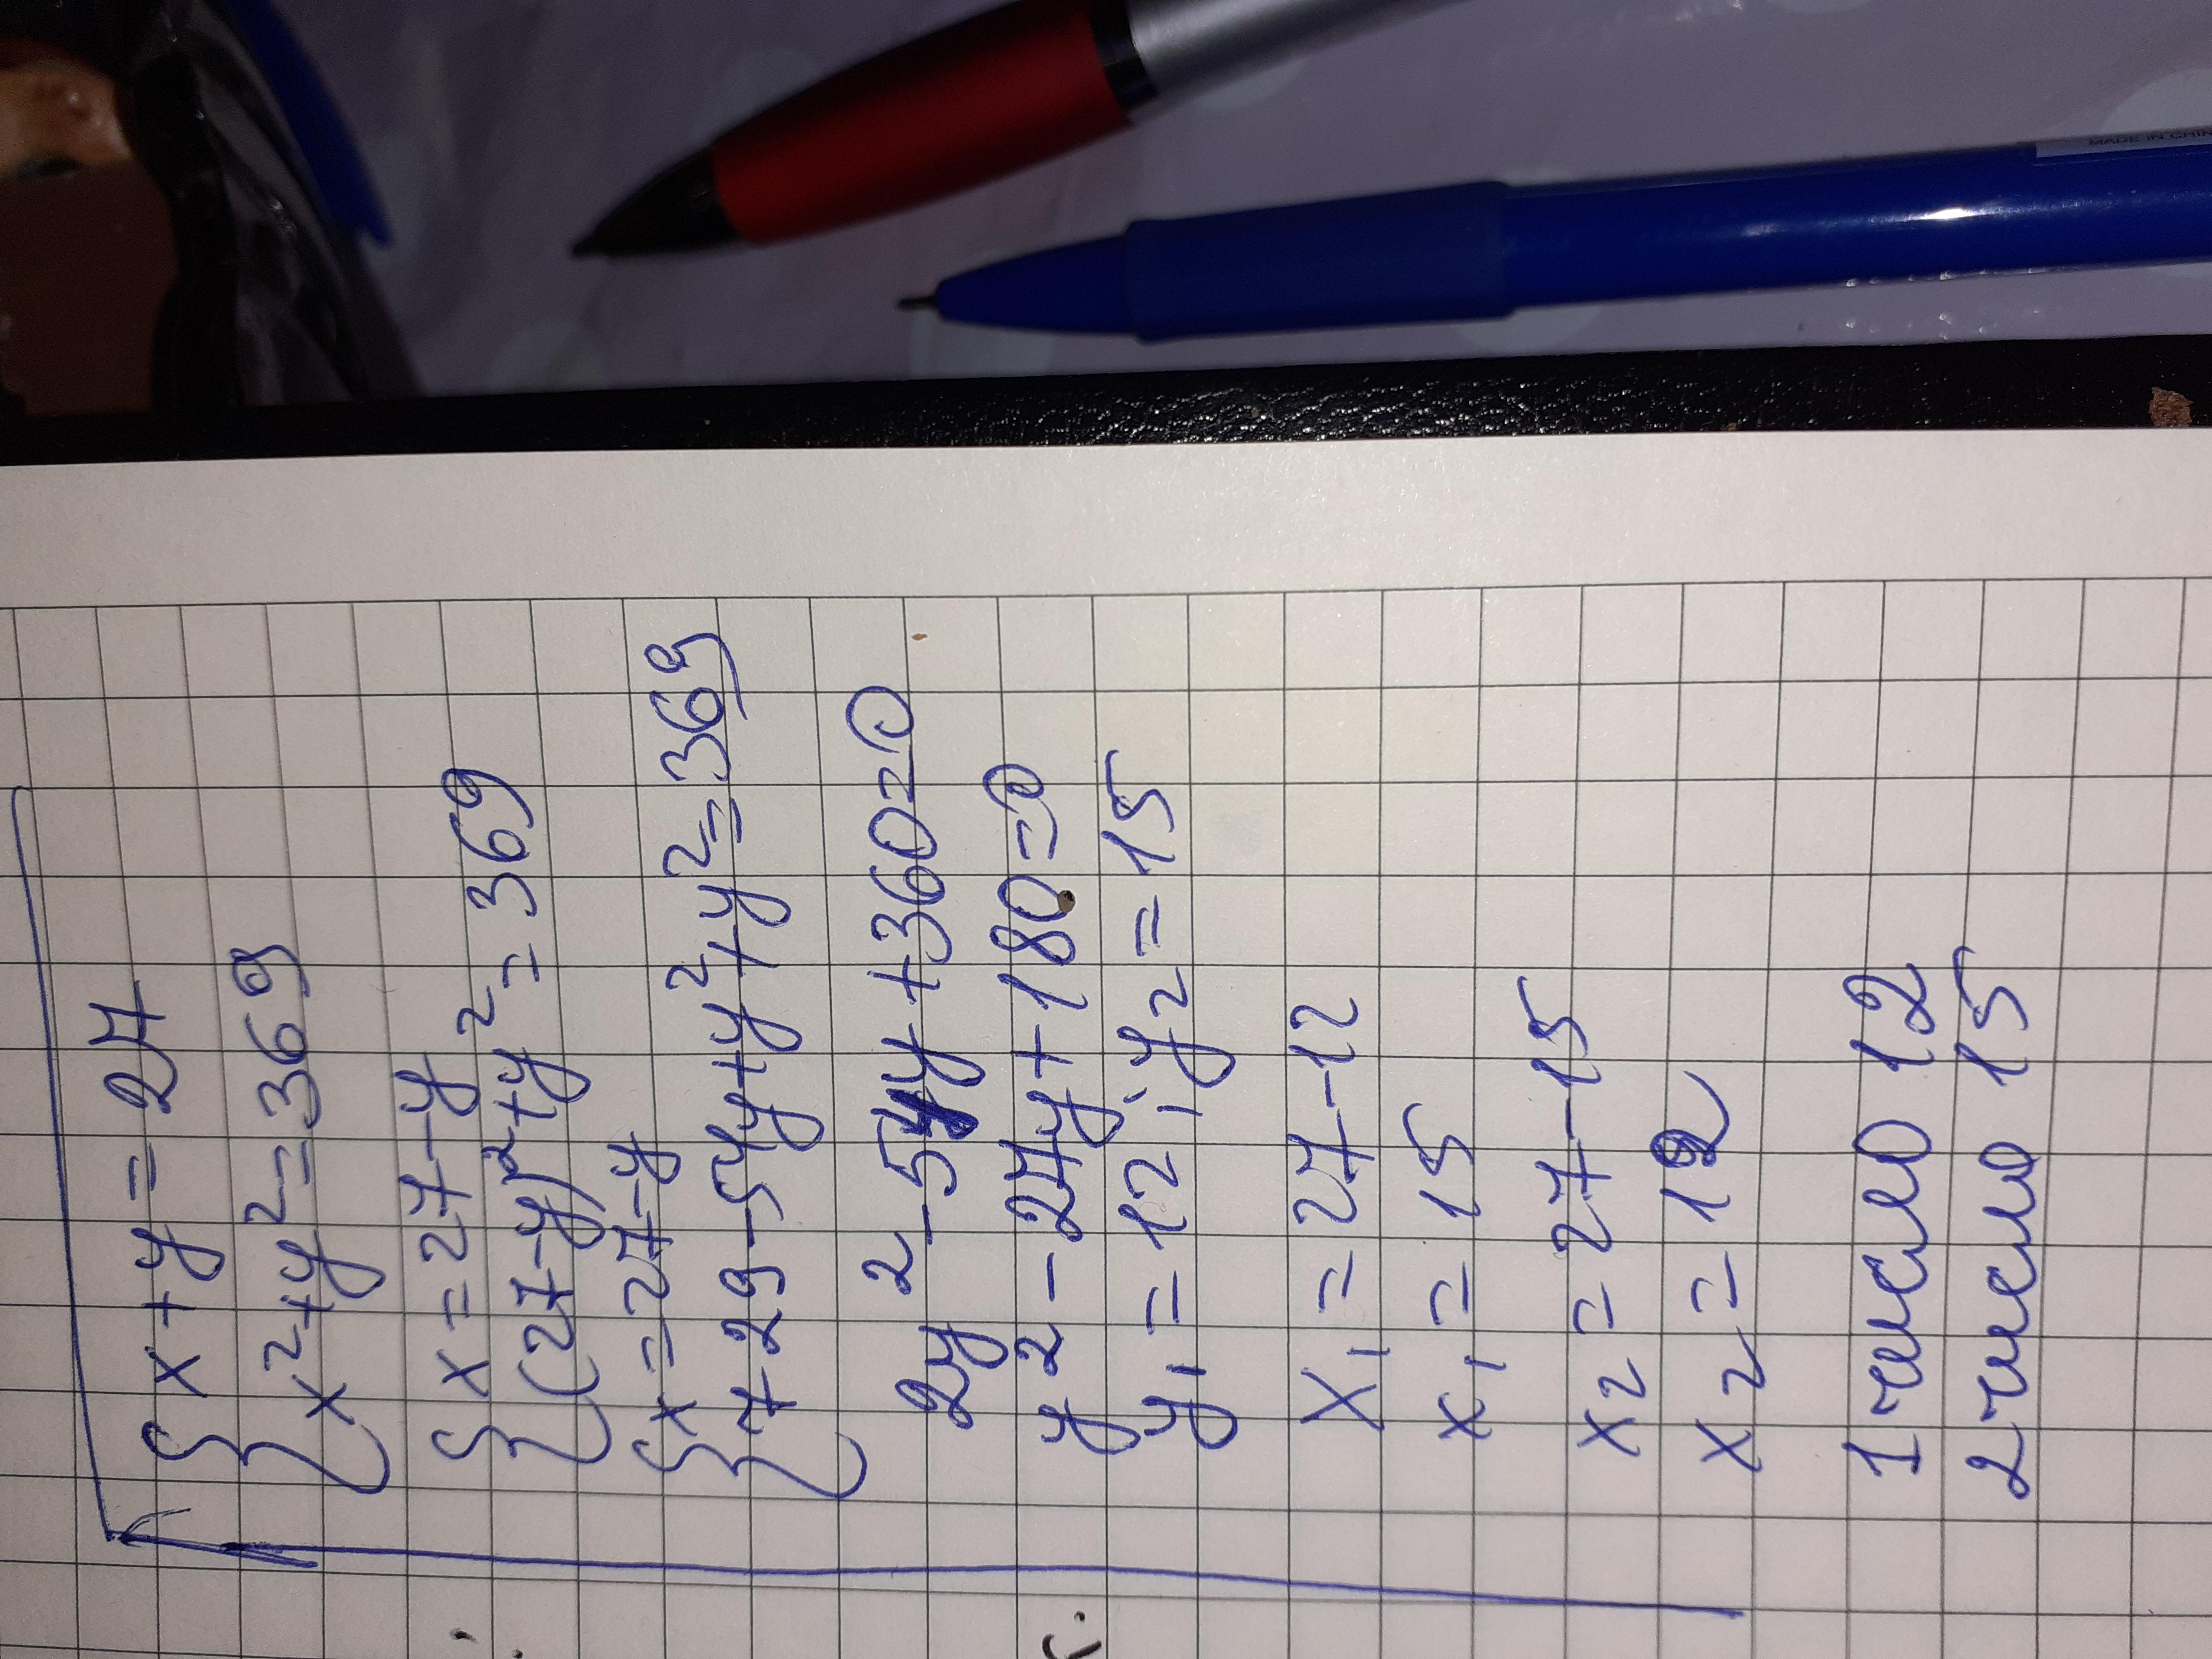 x + y = 27
x² + y² = 369
x = 27 - y
(27 - y)² + y² = 369
x = 27 - y
729 - 54y + y² + y² = 369
2y² - 54y + 360 = 0
y² - 27y + 180 = 0
y₁ = 12, y₂ = 15
x₁ = 27 - 12
x₁ = 15
x₂ = 27 - 15
x₂ = 12
1 число 12
2 число 15
MADE IN CHIN